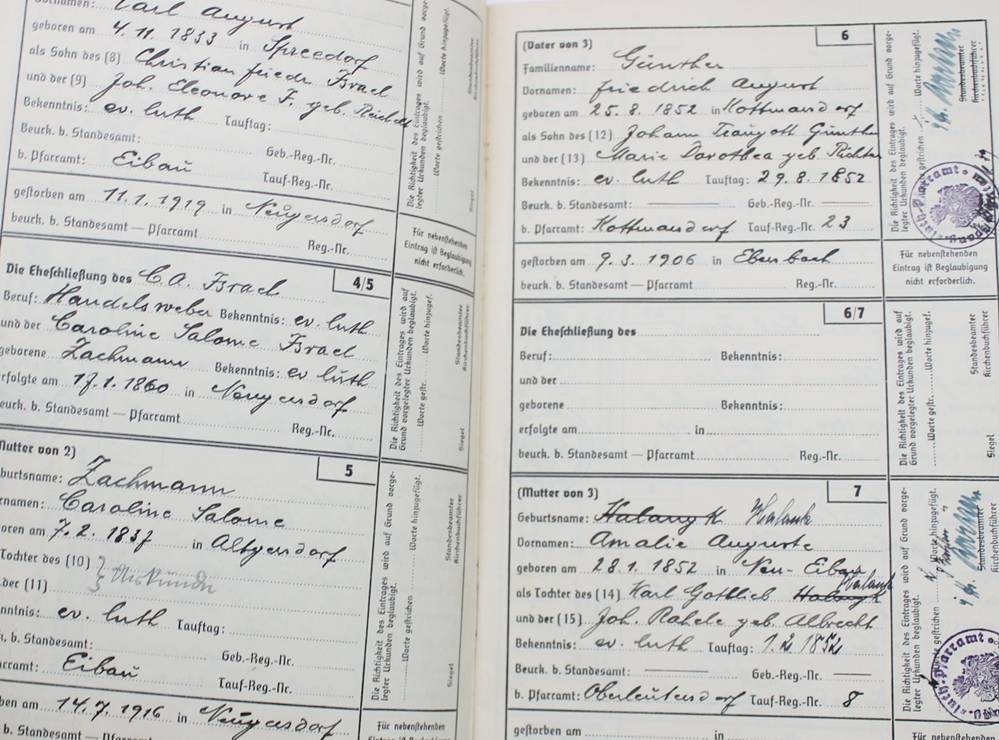 Vornamen: Karl August
geboren am 4. 11. 1833 in Spreedorf
als Sohn des (8) Christian Friedr. Israel
und der (9) Joh. Eleonore F. geb. Reichelt
Bekenntnis: ev. luth Tauftag:
Beurk. b. Standesamt: Geb.-Reg.-Nr.
b. Pfarramt: Eibau Tauf-Reg.-Nr.
gestorben am 11. 1. 1919 in Neugersdorf
beurk. b. Standesamt — Pfarramt Reg.-Nr.
Die Eheschließung des C. A. Israel 4/5
Beruf: Handelsweber Bekenntnis: ev. luth
und der Caroline Salome Israel
geborene Zachmann Bekenntnis: ev luth
erfolgte am 17. 1. 1860 in Neugersdorf
beurk. b. Standesamt — Pfarramt Reg.-Nr.
(Mutter von 2) 5
Geburtsname: Zachmann
Vornamen: Caroline Salome
geboren am 7. 2. 1837 in Altgersdorf
Tochter des (10) } Urkunde
der (11)
Bekenntnis: ev. luth Tauftag:
b. Standesamt: Geb.-Reg.-Nr.
Pfarramt: Eibau Tauf-Reg.-Nr.
gestorben am 14. 7. 1916 in Neugersdorf
b. Standesamt — Pfarramt Reg.-Nr.
Die Richtigkeit des Eintrages wird auf Grund vorge-
legter Urkunden beglaubigt.
Worte gestrichen Worte hinzugefügt.
Siegel
Für nebenstehenden
Eintrag ist Beglaubigung
nicht erforderlich.
Die Richtigkeit des Eintrages wird auf
Grund vorgelegter Urkunden beglaubigt.
Worte gestr. Worte hinzugef.
Standesbeamter
Kirchenbuchführer
Siegel
Die Richtigkeit des Eintrages wird auf Grund vorge-
legter Urkunden beglaubigt.
Worte gestrichen Worte hinzugefügt.
Standesbeamter
Kirchenbuchführer
Siegel
Für nebenstehenden
Eintrag ist Beglaubigung
(Vater von 3) 6
Familienname: Günther
Vornamen: Friedrich August
geboren am 25. 8. 1852 in Kottmarsdorf
als Sohn des (12) Johann Traugott Günther
und der (13) Marie Dorothea geb. Richter
Bekenntnis: ev. luth Tauftag: 29. 8. 1852
Beurk. b. Standesamt: Geb.-Reg.-Nr.
b. Pfarramt: Kottmarsdorf Tauf-Reg.-Nr. 23
gestorben am 9. 3. 1906 in Ebersbach
beurk. b. Standesamt — Pfarramt Reg.-Nr.
6/7
Die Eheschließung des
Beruf: Bekenntnis:
und der
geborene Bekenntnis:
erfolgte am in
beurk. b. Standesamt — Pfarramt Reg.-Nr.
(Mutter von 3) 7
Geburtsname: Halangk Halank
Vornamen: Amalie Auguste
geboren am 28. 1. 1852 in Neu-Eibau
Halank
als Tochter des (14) Karl Gottlieb Halangk
und der (15) Joh. Rahele geb. Albrecht
Bekenntnis: ev. luth Tauftag: 1. 2. 1852
Beurk. b. Standesamt: Geb.-Reg.-Nr.
b. Pfarramt: Oberleutersdorf Tauf-Reg.-Nr. 8
gestorben am in
Die Richtigkeit des Eintrages wird auf Grund vorge-
legter Urkunden beglaubigt.
Worte gestrichen Worte hinzugefügt.
Standesbeamter
Kirchenbuchführer
Für nebenstehenden
Eintrag ist Beglaubigung
nicht erforderlich.
Die Richtigkeit des Eintrages wird auf
Grund vorgelegter Urkunden beglaubigt.
Worte gestr. Worte hinzugef.
Standesbeamter
Kirchenbuchführer
Siegel
Die Richtigkeit des Eintrages wird auf Grund vorge-
legter Urkunden beglaubigt.
Worte gestrichen Worte hinzugefügt.
Standesbeamter
Kirchenbuchführer
luth. Pfarramt
Für nebenstehenden